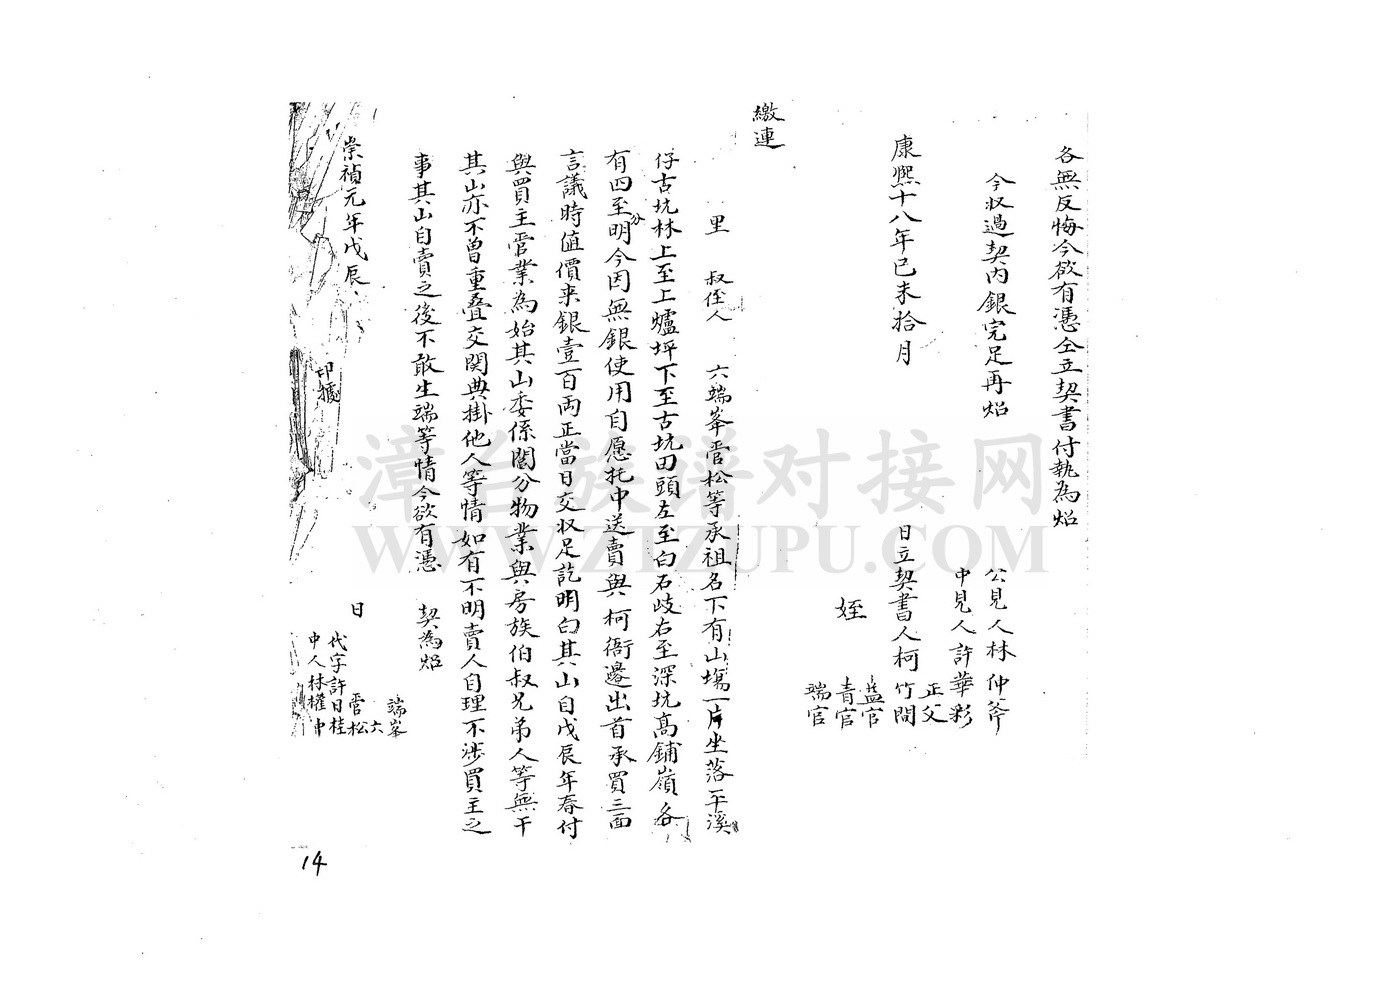 各無反悔今欲有憑仝立契書付執為炤
今收過契內銀完足再炤
公見人林仲斧
中見人許華彩
康熙十八年己未拾月 日立契書人柯
正父
竹閭
姪
藍官
青官
端官
繳連
里 叔侄人 六端峯管松等承祖名下有山塲一片坐落平溪
仔古坑林上至上爐坪下至古坑田頭左至白石岐右至深坑高鋪嶺各
有四至分明今因無銀使用自愿托中送賣與柯衙邊出首承買三面
言議時值價來銀壹百両正當日交收足訖明白其山自戊辰年春付
與買主管業為始其山委係鬮分物業與房族伯叔兄弟人等無干
其山亦不曾重叠交関典掛他人等情如有不明賣人自理不涉買主之
事其山自賣之後不敢生端等情今欲有憑 契為炤
崇禎元年戊辰 日
印撼
端峯
六
管松
代字許日桂
中人林權中
14
漳台族谱对接网
WWW.ZTZUPU.COM